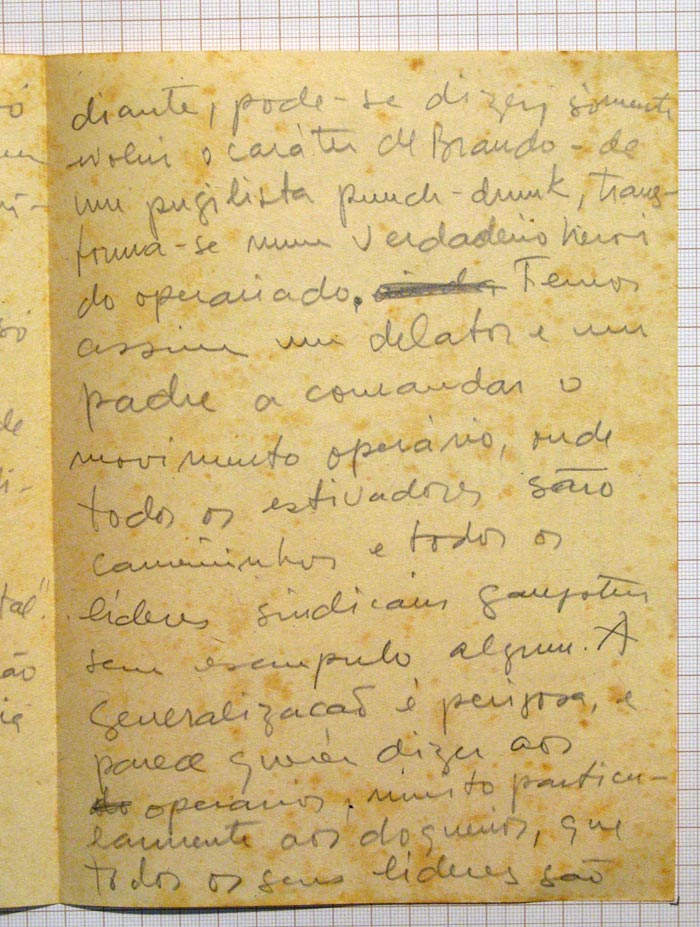 diante, pode-se dizer, sòmente
evolui o caráter de Brando - de
um pugilista punch-drunk, trans-
forma-se num verdadeiro heroi
do operariado. Temos
assim um delator e um
padre a comandar o
movimento operário, onde
todos os estivadores são
carneirinhos e todos os
líderes sindicais gangsters
sem escrupulo algum. A
generalizacaõ é perigosa, e
parece querer dizer aos
operarios, muito particu-
larmente aos doqueiros, que
todos os seus líderes saõ